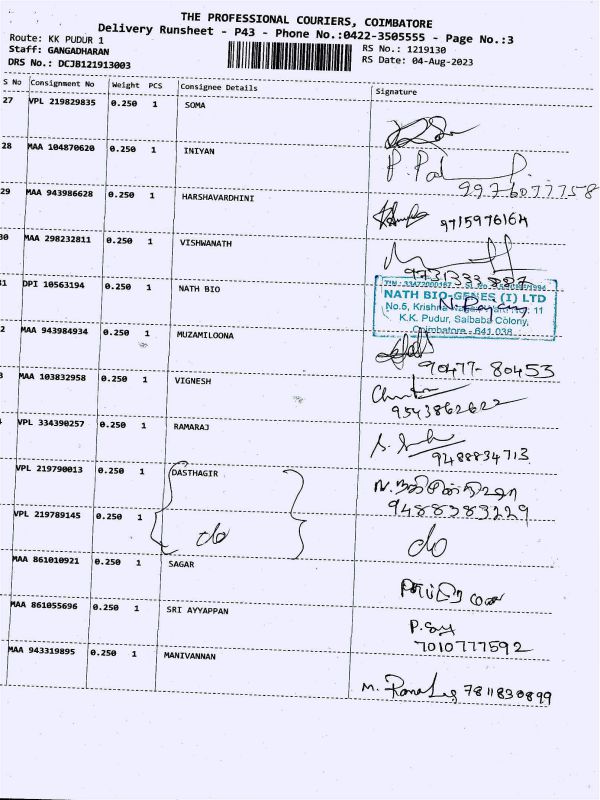 THE PROFESSIONAL COURIERS, COIMBATORE
Delivery Runsheet - P43 - Phone No.:0422-3505555 - Page No.:3
Route: KK PUDUR 1
Staff: GANGADHARAN
RS No.: 1219130
DRS No.: DCJB121913003
RS Date: 04-Aug-2023
S No Consignment No Weight PCS Consignee Details Signature
27 VPL 219829835 0.250 1 SOMA
28 MAA 104870620 0.250 1 INIYAN
9976077758
29 MAA 943986628 0.250 1 HARSHAVARDHINI 9715976164
30 MAA 298232811 0.250 1 VISHWANATH
31 DPI 10563194 0.250 1 NATH BIO
NATH BIO-GENES (I) LTD
No.5, Krishna 11
K.K. Pudur, Saibaba Colony,
Coimbatore - 641 038
2 MAA 943984934 0.250 1 MUZAMILOONA
90477-80453
3 MAA 103832958 0.250 1 VIGNESH
9543862622
VPL 334390257 0.250 1 RAMARAJ
9488834713
VPL 219790013 0.250 1 DASTHAGIR
9488383229
VPL 219789145 0.250 1 do do
MAA 861010921 0.250 1 SAGAR
MAA 861055696 0.250 1 SRI AYYAPPAN
7010777592
MAA 943319895 0.250 1 MANIVANNAN
7811830899